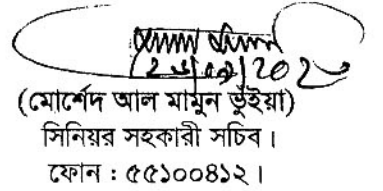 (মোর্শেদ আল মামুন ভূঁইয়া)
সিনিয়র সহকারী সচিব।
ফোন : ৫৫১০০৪১২।